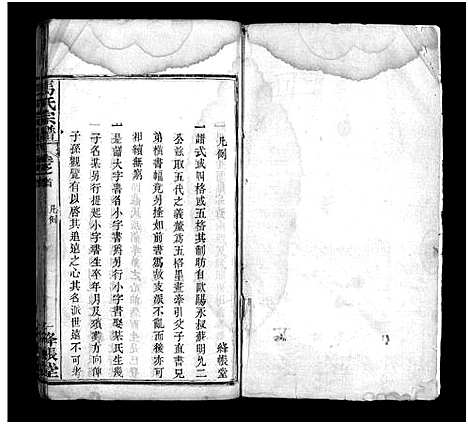 凡例
絳帳堂
一譜式或四格或五格其制昉自歐陽永叔蘇明允二
公並取五代之義董爲五格墨畫牽引父子直書兄
弟橫書輻竟另接如前書寫故支派不亂而世次可
相續無窮
一是譜大字書名小字書爵另行小字書娶某氏生幾
子名某另行提起小字書生卒年月及殯葬方向俾
子孫觀覽有以啓其追遠之心其名派世遠不可考
馬氏宗譜
卷之首
凡例
一
絳帳堂